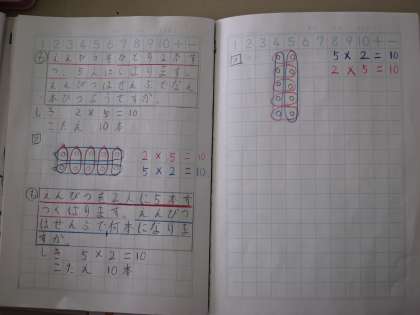 1 2 3 4 5 6 7 8 9 10 + -
も えんぴつを ひとりに 2本ず
つ、5人に くばります。
えんぴつは ぜんぶで なん
本 ひつようですか。
しき 2×5=10
こたえ 10本
図
2×5=10
5×2=10
も えんぴつを 2人に 5本ず
つ くばります。えんぴつ
は ぜんぶで 何本になりま
すか。
しき 5×2=10
こたえ 10本
1 2 3 4 5 6 7 8 9 10 + -
5×2=10
2×5=10